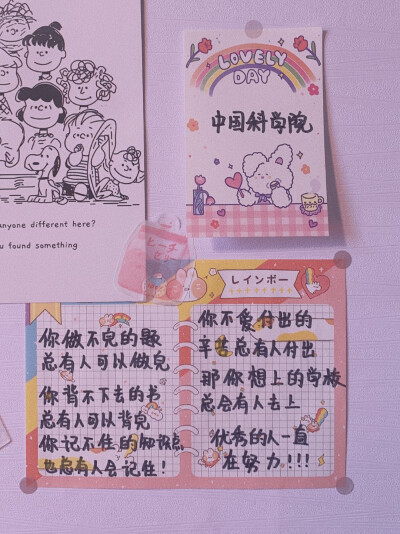 anyone different here?
u found something
LOVELY
DAY
中国科学院
ピーチ
レインボー
你做不完的题
总有人可以做完
你背不下去的书
总有人可以背完
你记不住的知识点
也总有人会记住!
你不愛付出的
辛苦总有人付出
那你想上的学校
总会有人去上
优秀的人一直
在努力!!!